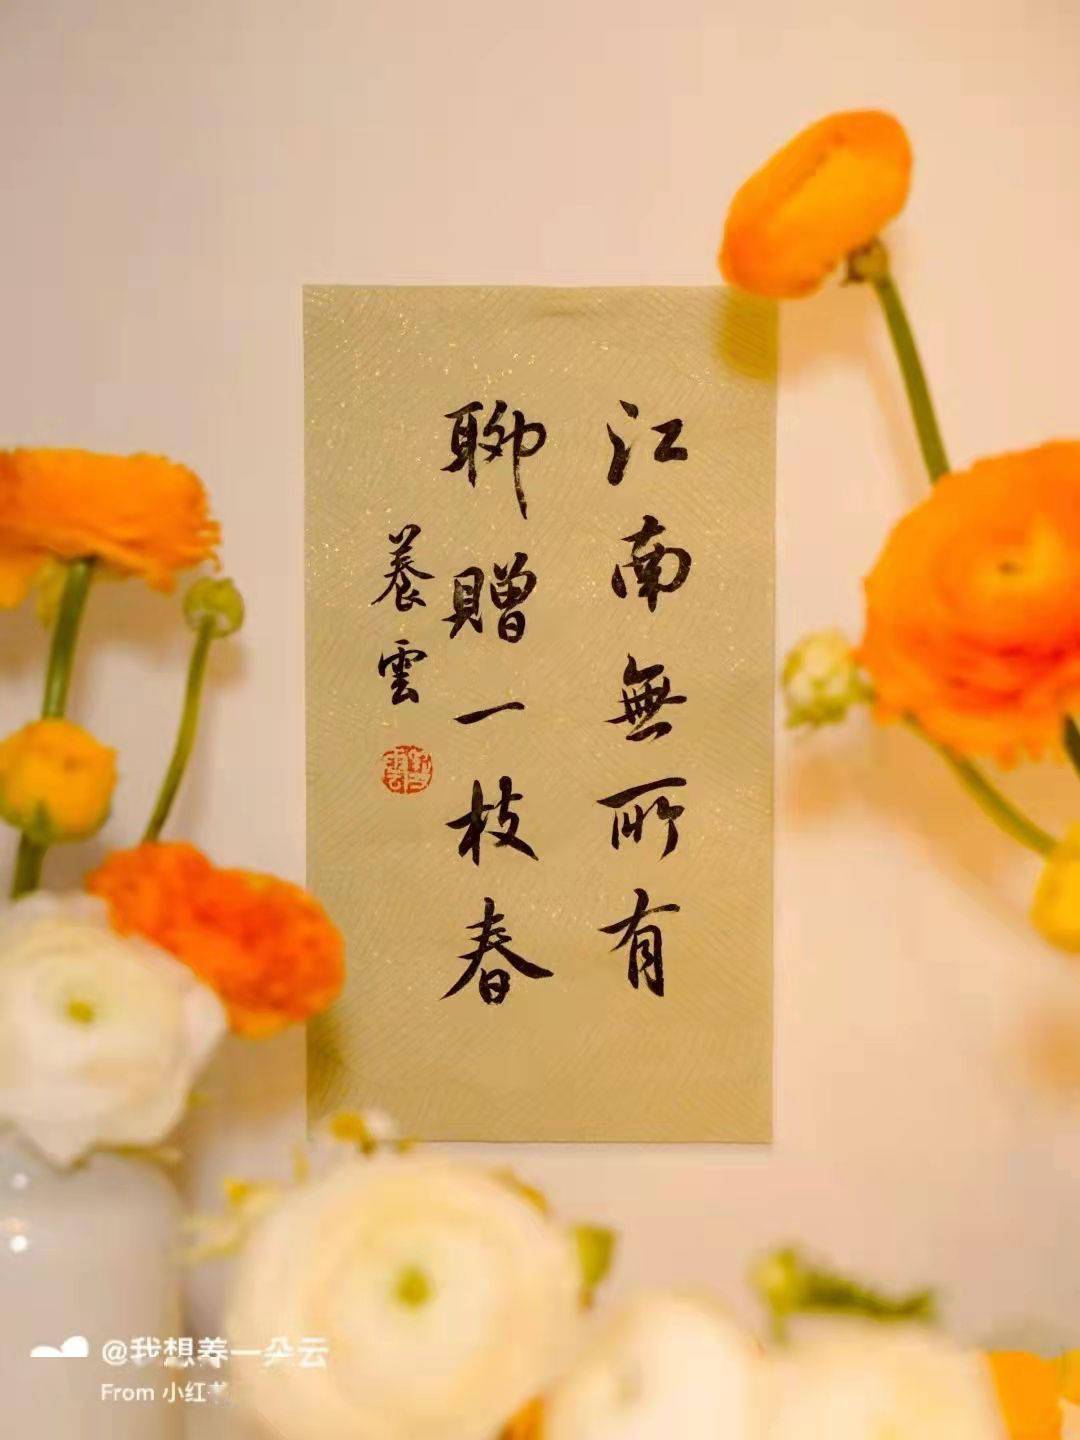 江南無所有
聊贈一枝春
養雲
@我想养一朵云
From 小红书